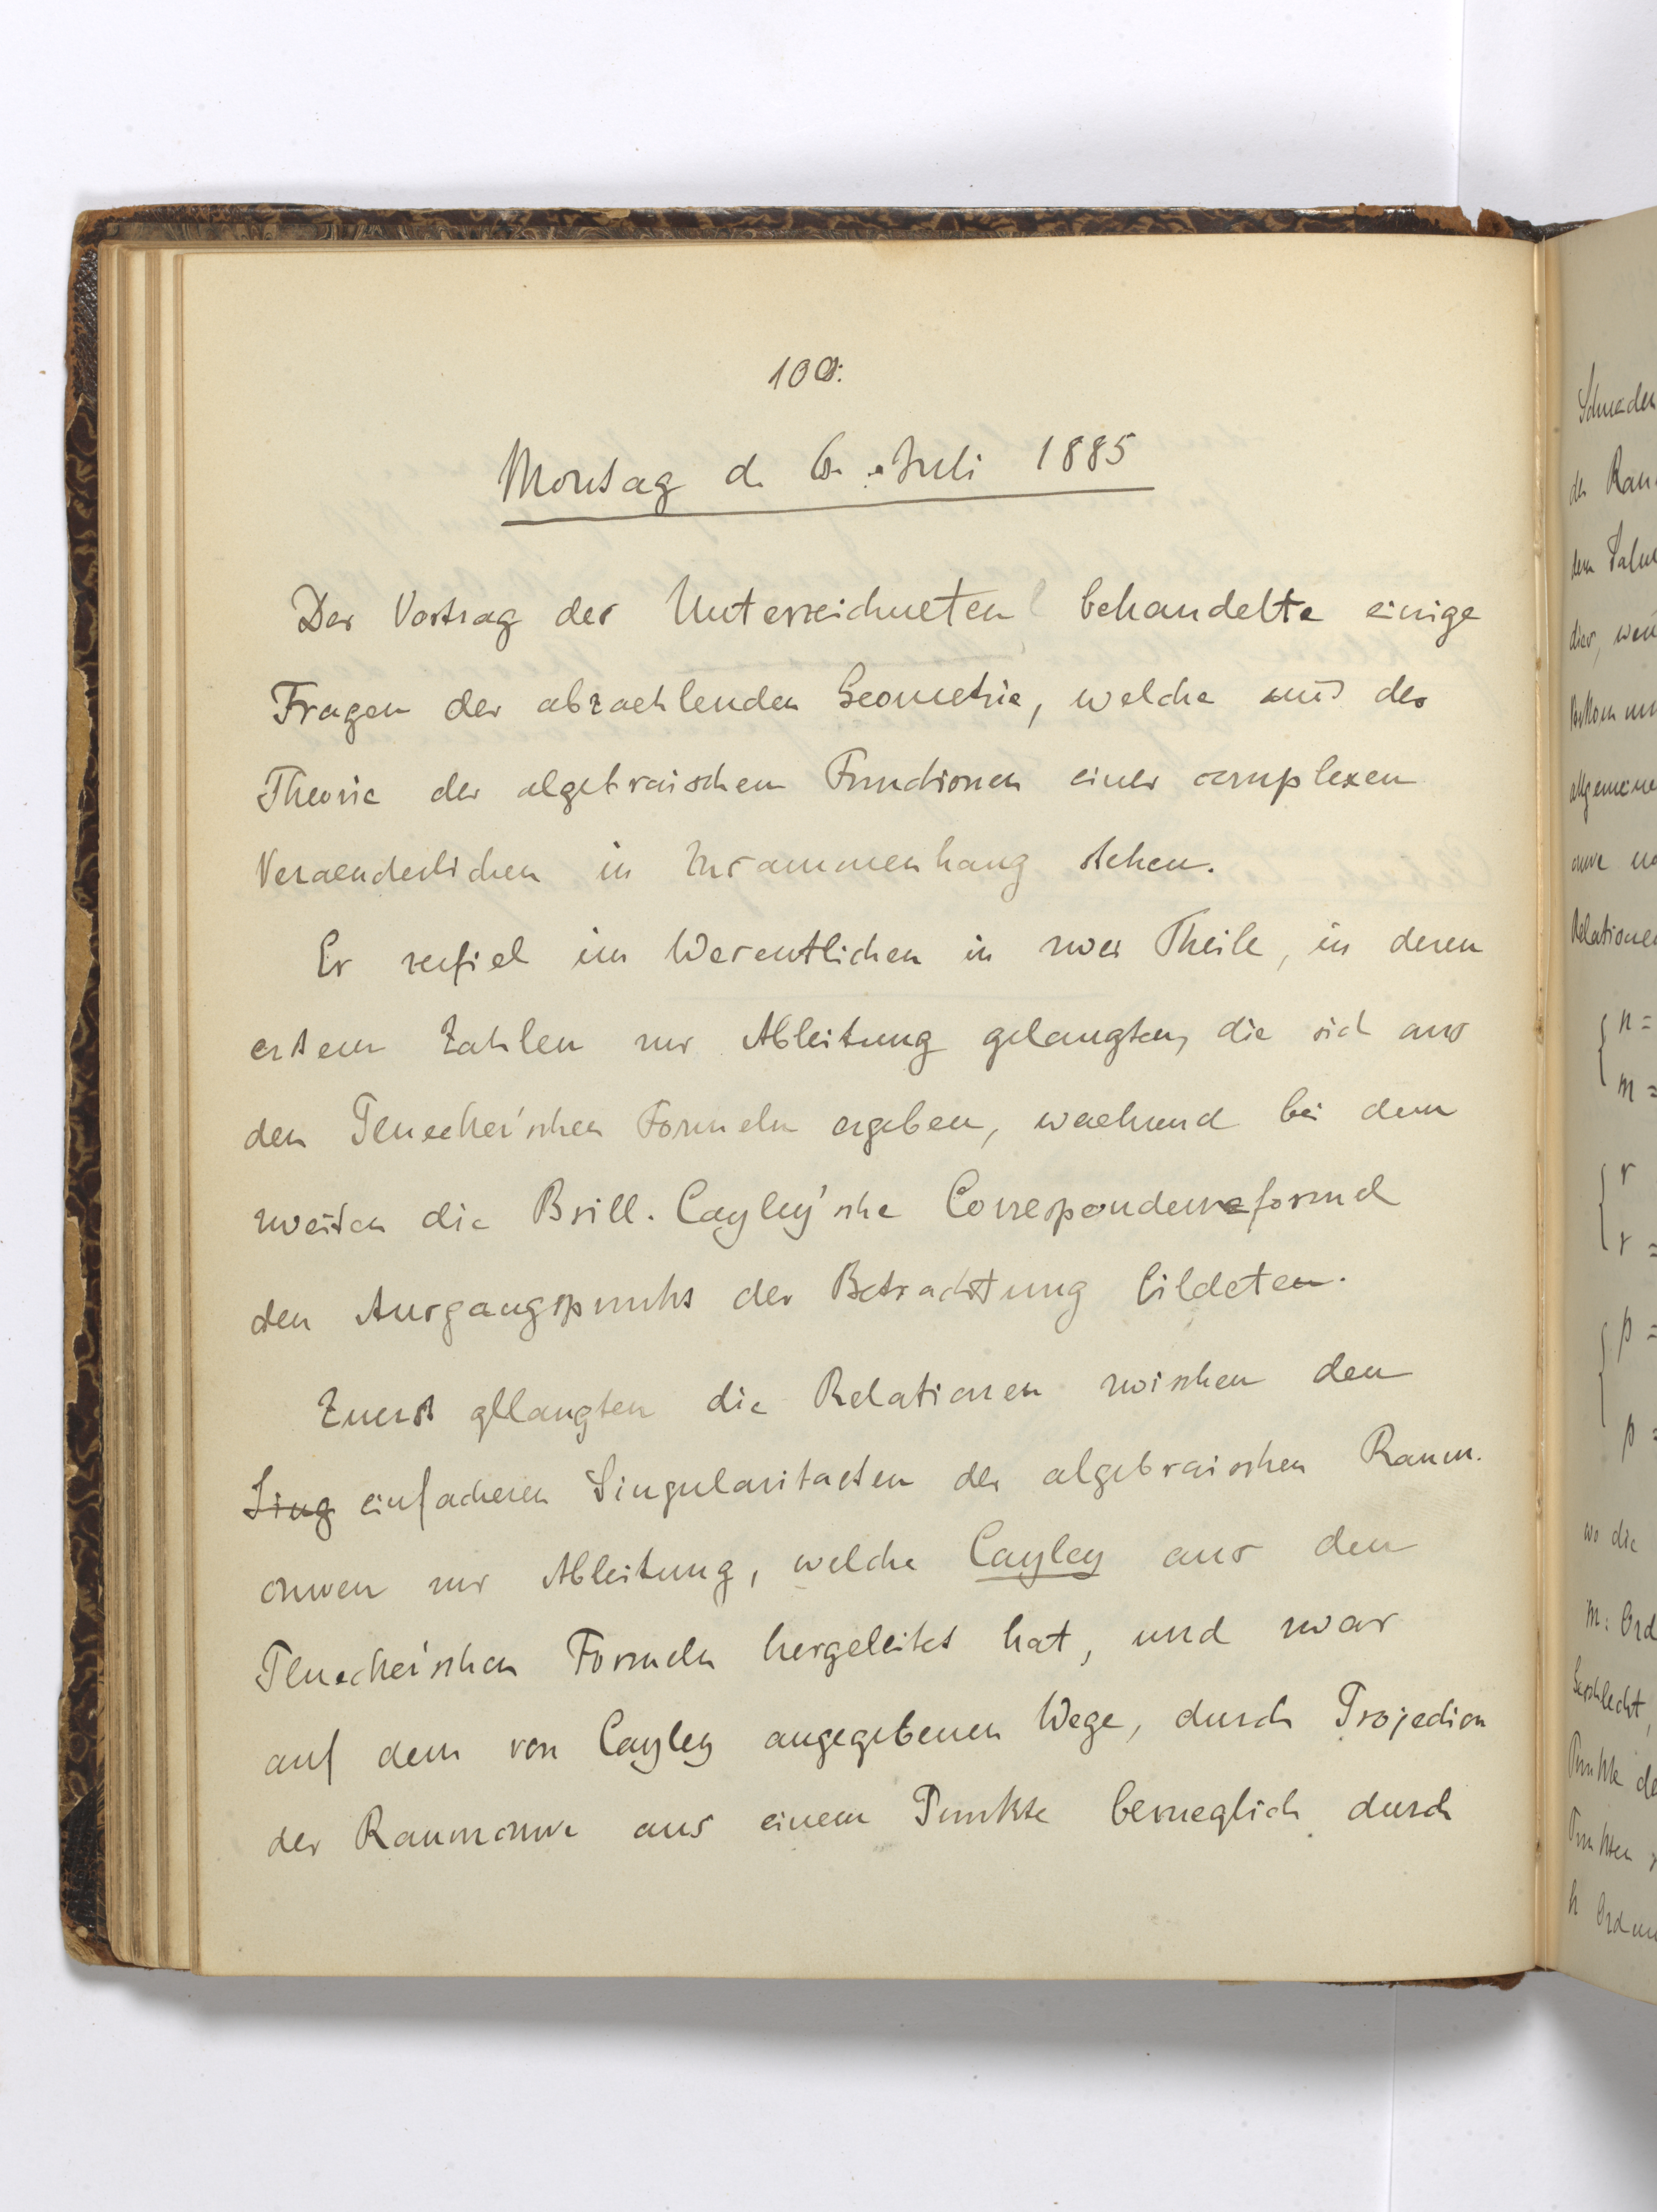 100.
Montag d. 6. Juli 1885
Der Vortrag des Unterzeichneten behandelte einige
Fragen der abzaehlenden Geometrie, welche mit der
Theorie der algebraischen Functionen einer complexen
Veraenderlichen in Zusammenhang stehen.
Er zerfiel im Wesentlichen in zwei Theile, in deren
erstem Zahlen zur Ableitung gelangten, die sich aus
den Pluecker'schen Formeln ergeben, waehrend bei dem
zweiten die Brill-Cayley'sche Correspondenzformel
den Ausgangspunkt der Betrachtung bildeten.
Zuerst gelangten die Relationen zwischen den
Sing einfacheren Singularitaeten der algebraischen Raum-
curven zur Ableitung, welche Cayley aus den
Pluecker'schen Formeln hergeleitet hat, und zwar
auf dem von Cayley angegebenen Wege, durch Projection
der Raumcurve aus einem Punkte bezueglich durch
der Raum
dem
dier, wen
allgemeine
curve
Relationen
n =
m =
r
r =
p =
p =
wo die
m: Ord
Geschlecht,
Punkte de
Punkten